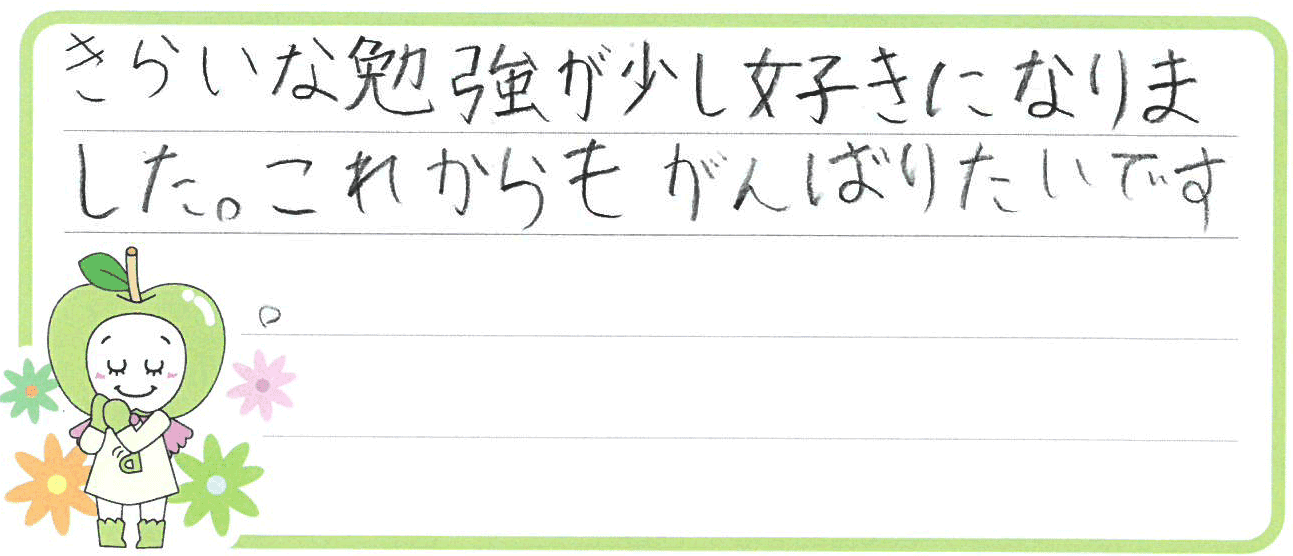 きらいな勉強が少し好きになりま
した。これからもがんばりたいです
。